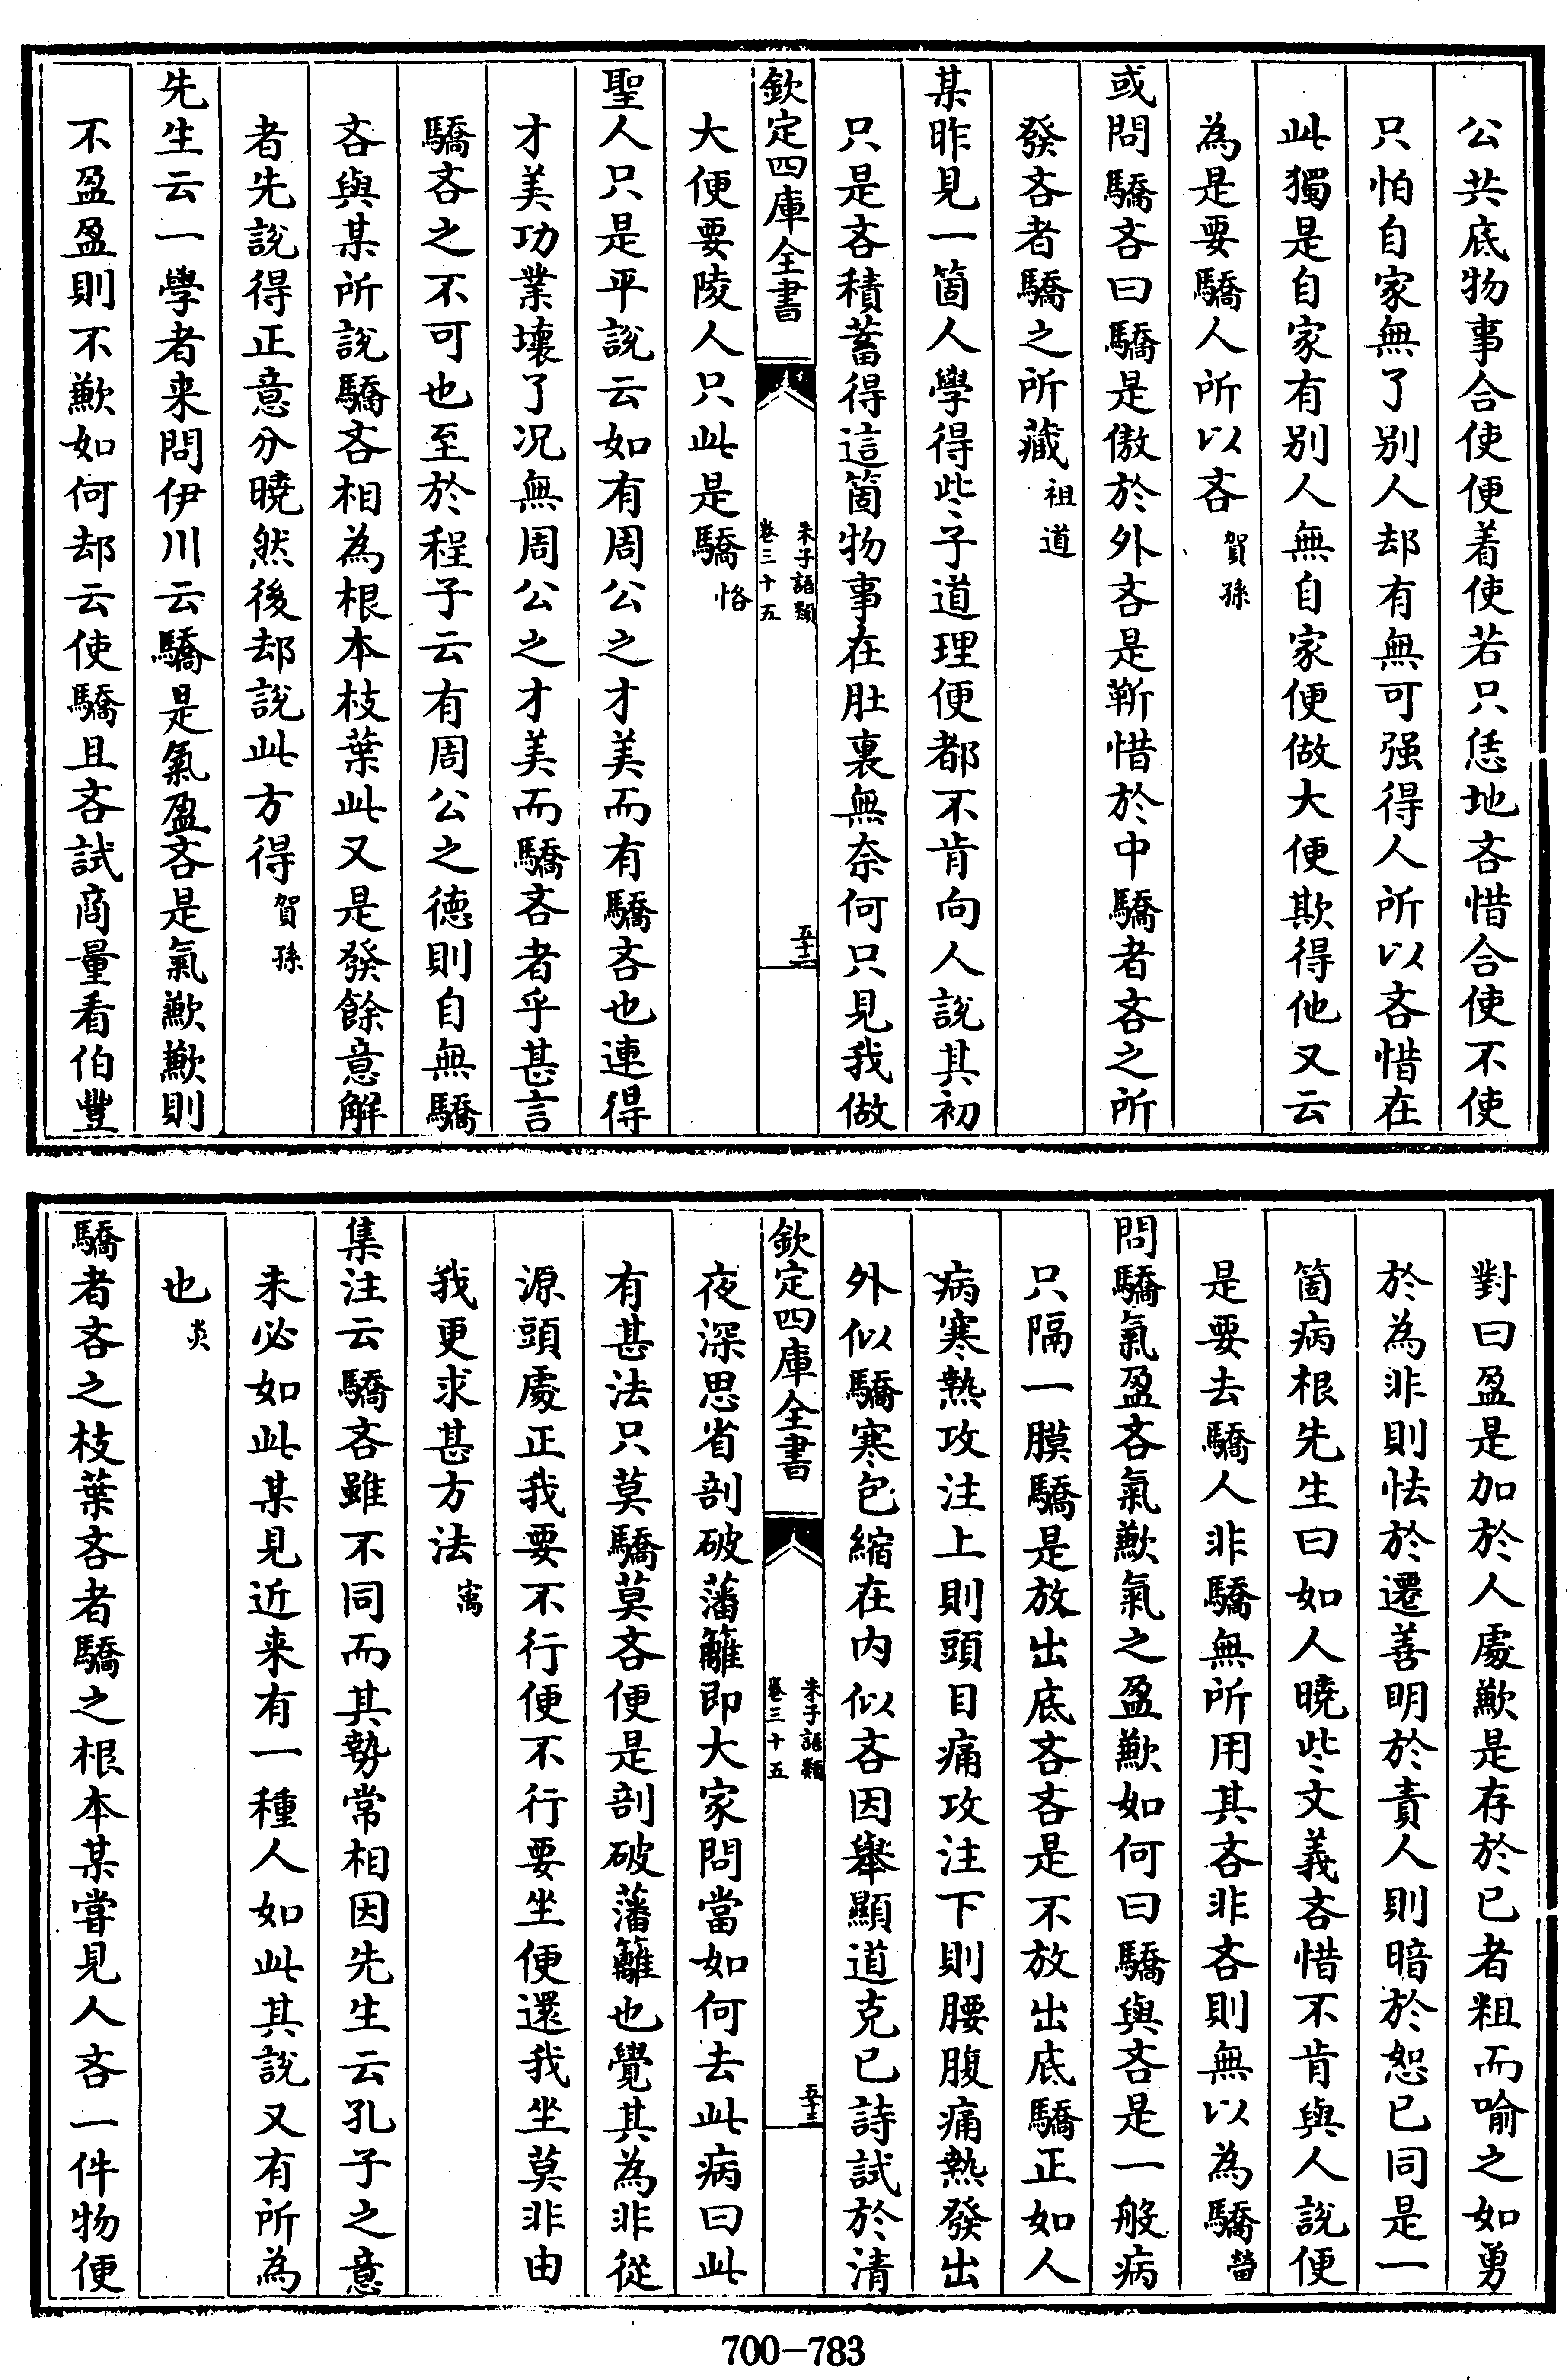 公共底物事合使便着使若只恁地吝惜合使不使
只怕自家無了别人却有無可强得人所以吝惜在
此獨是自家有别人無自家便做大便欺得他又云
為是要驕人所以吝賀孫
或問驕吝曰驕是傲於外吝是靳惜於中驕者吝之所
發吝者驕之所藏祖道
某昨見一箇人學得些子道理便都不肯向人說其初
只是吝積蓄得這箇物事在肚裏無奈何只見我做
欽定四庫全書
朱子語類
卷三十五
五十二
大便要陵人只此是驕恪
聖人只是平說云如有周公之才美而有驕吝也連得
才美功業壞了况無周公之才美而驕吝者乎甚言
驕吝之不可也至於程子云有周公之德則自無驕
吝與某所說驕吝相為根本枝葉此又是發餘意解
者先說得正意分曉然後却說此方得賀孫
先生云一學者来問伊川云驕是氣盈吝是氣歉歉則
不盈盈則不歉如何却云使驕且吝試商量看伯豐
對曰盈是加於人處歉是存於已者粗而喻之如勇
於為非則怯於遷善明於責人則暗於恕已同是一
箇病根先生曰如人曉些文義吝惜不肯與人說便
是要去驕人非驕無所用其吝非吝則無以為驕㽦
問驕氣盈吝氣歉氣之盈歉如何曰驕與吝是一般病
只隔一膜驕是放出底吝吝是不放出底驕正如人
病寒熱攻注上則頭目痛攻注下則腰腹痛熱發出
外似驕寒包縮在内似吝因舉顯道克已詩試於清
欽定四庫全書
朱子語類
卷三十五
五十三
夜深思省剖破藩籬即大家問當如何去此病曰此
有甚法只莫驕莫吝便是剖破藩籬也覺其為非從
源頭處正我要不行便不行要坐便還我坐莫非由
我更求甚方法㝢
集注云驕吝雖不同而其勢常相因先生云孔子之意
未必如此某見近来有一種人如此其說又有所為
也炎
驕者吝之枝葉吝者驕之根本某嘗見人吝一件物便
700-783